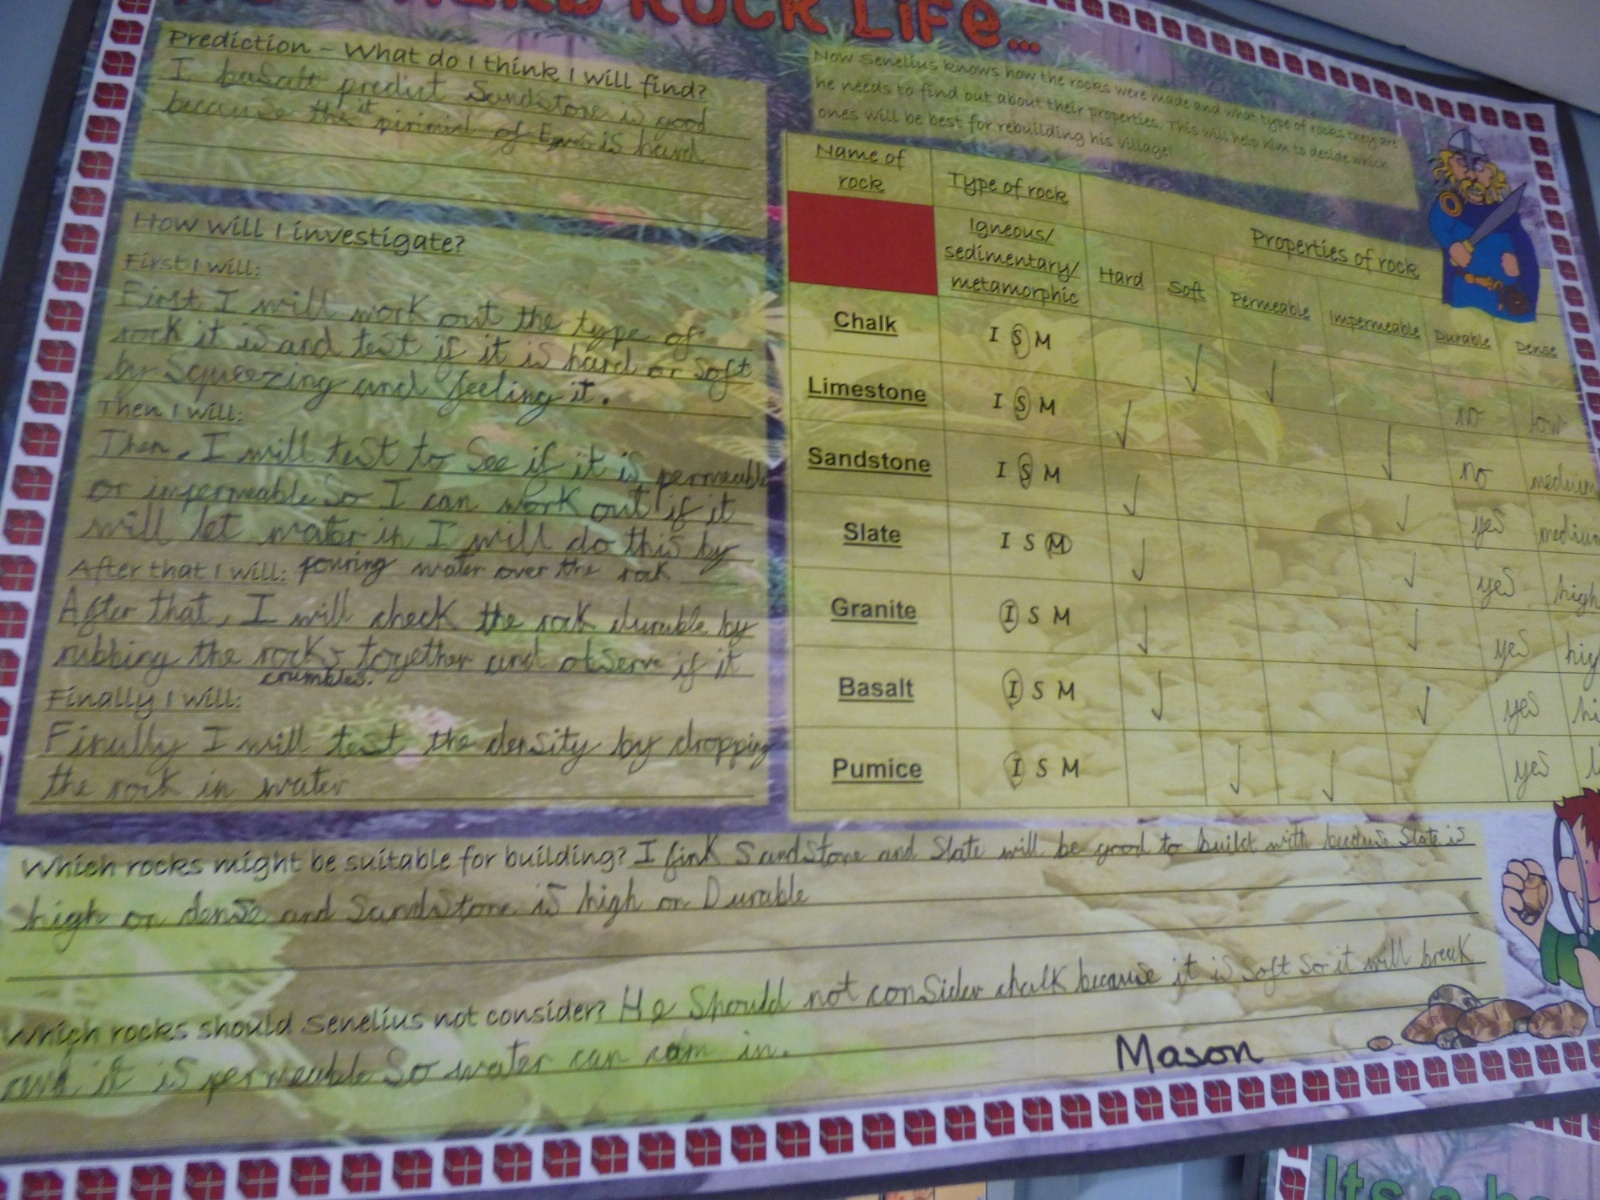 HARD ROCK LIFE...
Prediction – What do I think I will find?
I basalt predict Sandstone is good
because the it pirimid of is hard
How will I investigate?
First I will:
First I will work out the type of
rock it is and test if it is hard or soft
by Squeezing and feeling it.
Then I will:
Then, I will test to See if it is permeable
or impermeable So I can work out if it
will let water in I will do this by
After that I will: pouring water over the rock
After that, I will check the rock durable by
rubbing the rocks together and observe if it
crumbles.
Finally I will:
Finally I will test the density by dropping
the rock in water
Now Senelius knows how the rocks were made and what type of rocks they are
he needs to find out about their properties. This will help him to decide which
ones will be best for rebuilding his village!
Name of rock
Type of rock
Properties of rock
Igneous/
sedimentary/
metamorphic
Hard Soft Permeable Impermeable Durable Dense
Chalk I S M ✓ ✓ no low
Limestone I S M ✓ ✓ no medium
Sandstone I S M ✓ ✓ yes medium
Slate I S M ✓ ✓ yes high
Granite I S M ✓ ✓ yes hig
Basalt I S M ✓ ✓ yes hi
Pumice I S M ✓ ✓ yes l
Which rocks might be suitable for building? I fink SandStone and Slate will be good to build with becuse Slate is
high on dense and SandStone is high on Durable
Which rocks should Senelius not consider? He Should not conSider chalk because it is Soft So it will break
and it is permeable So water can com in.
Mason
Its a h